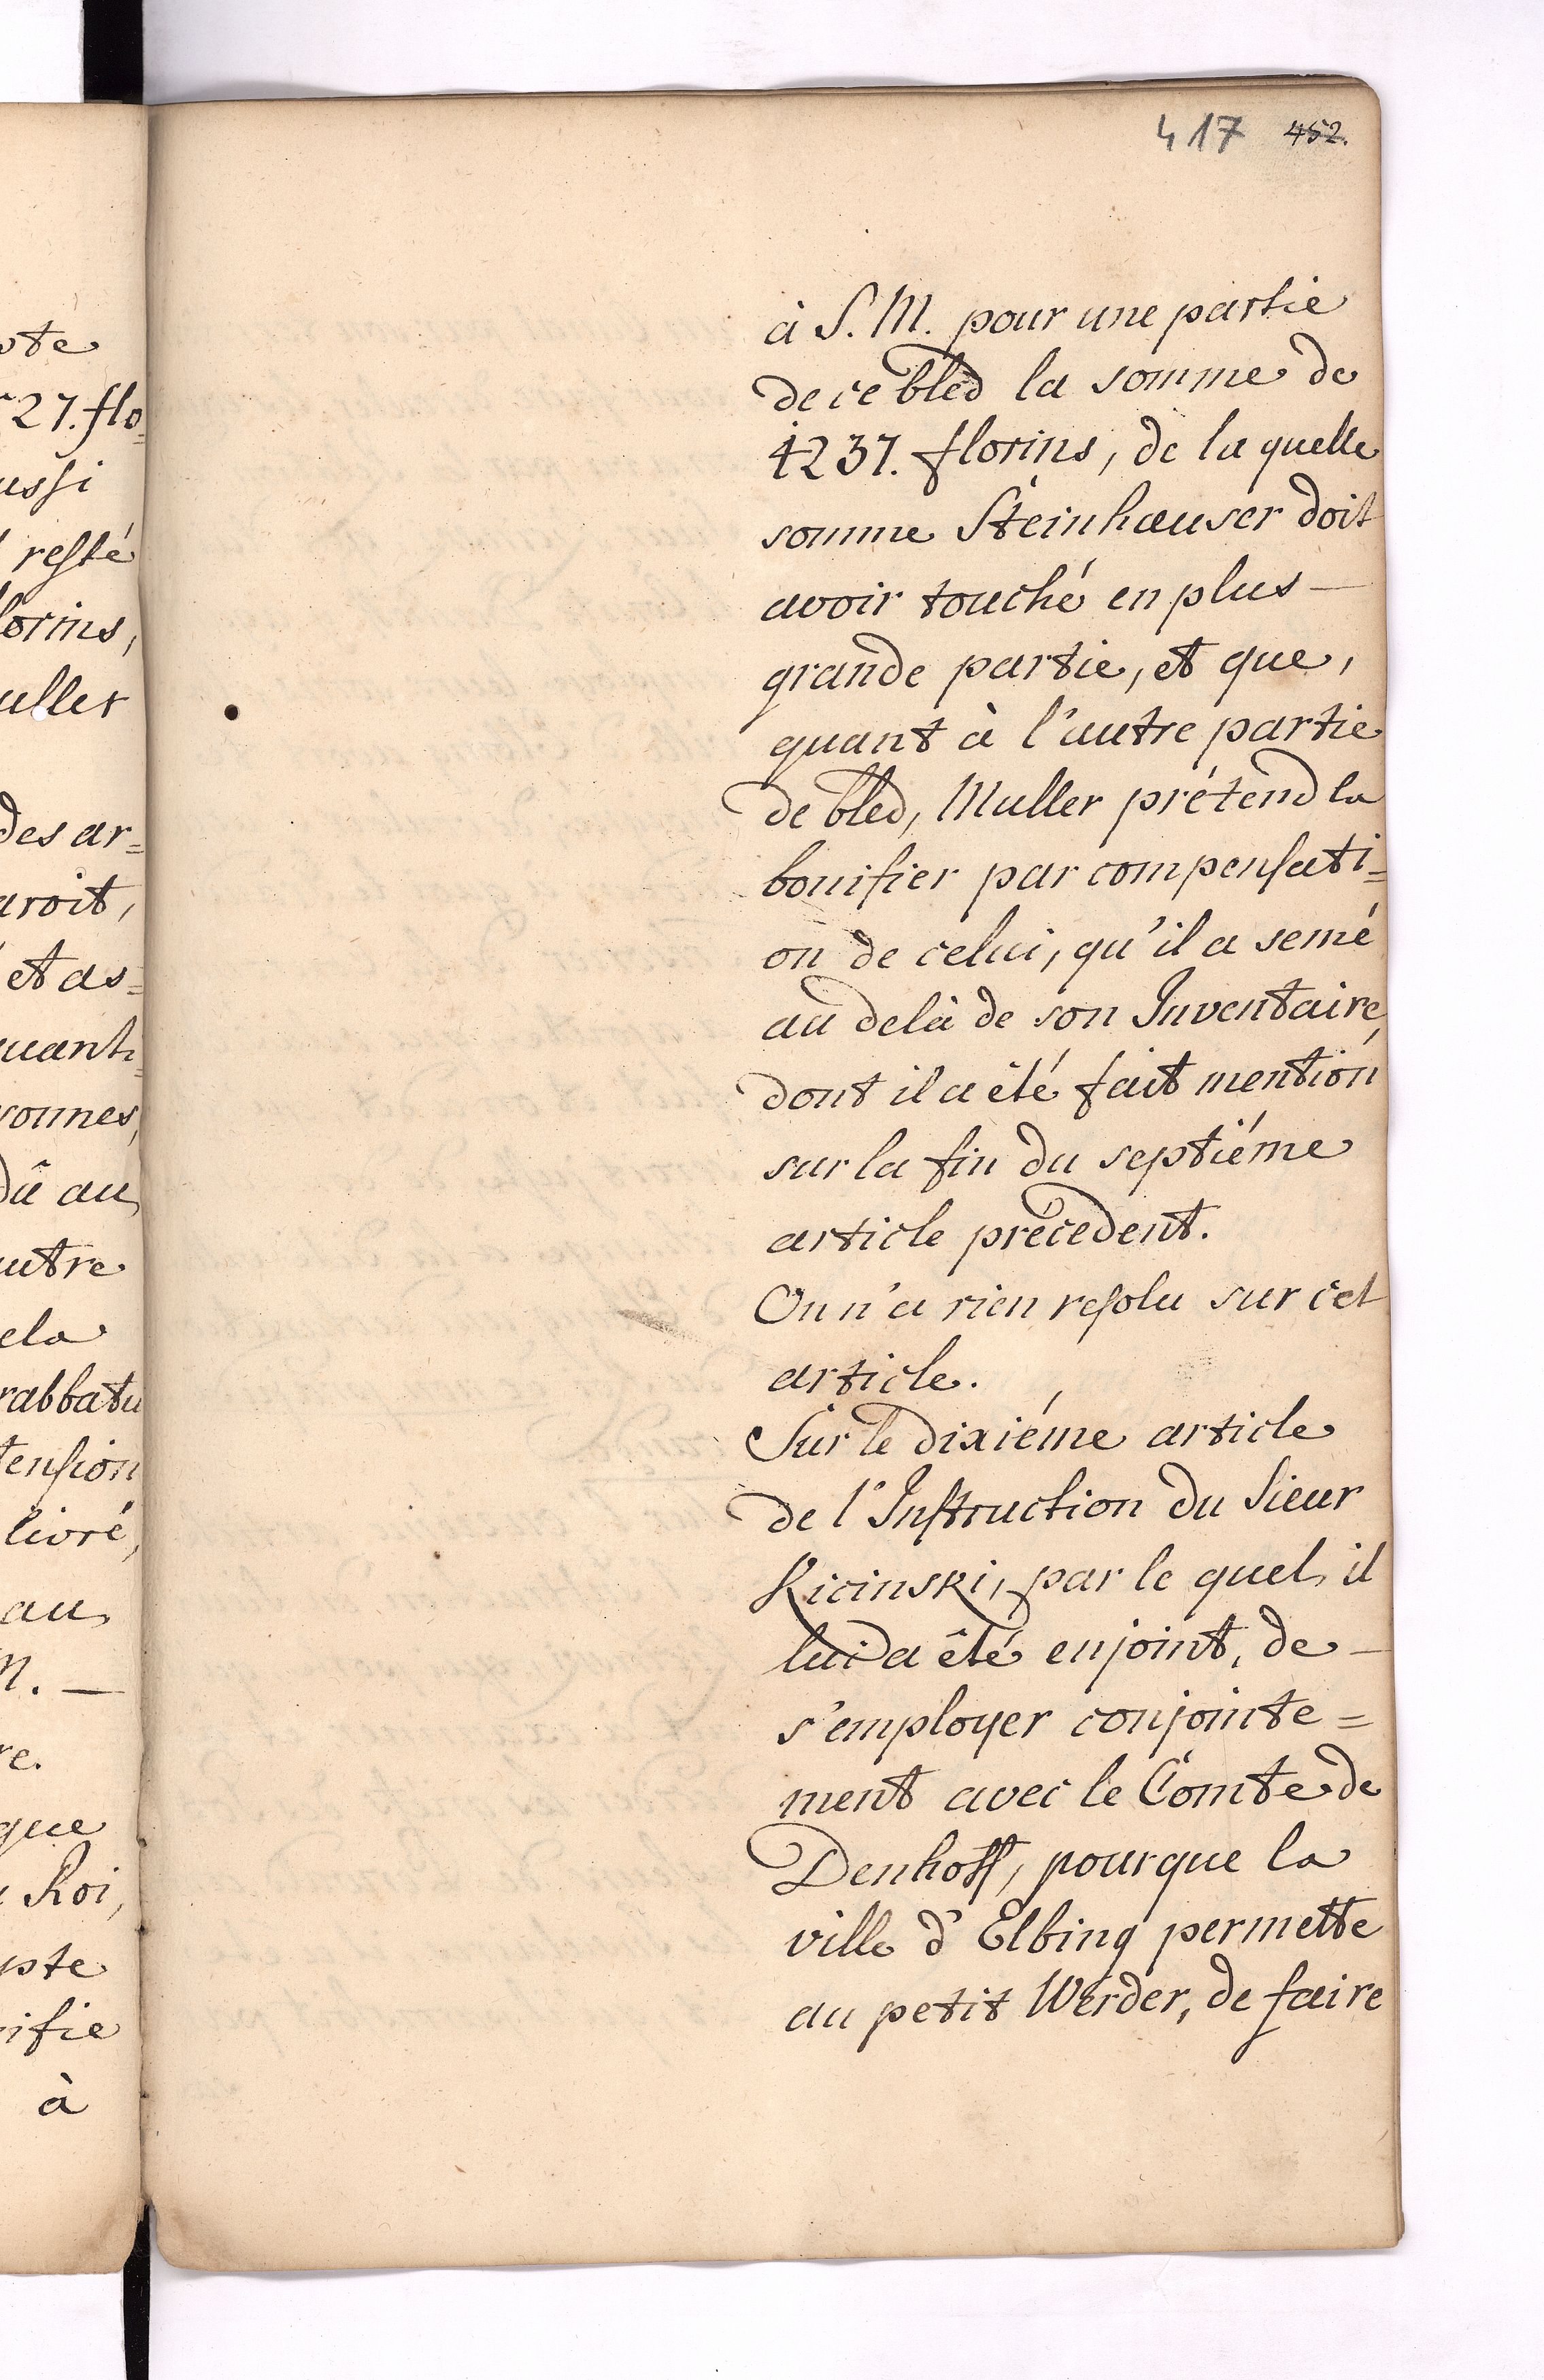 417 452.
à S. M. pour une partie
de ce bled la somme de
4237. florins, de la quelle
somme Steinhauser doit
avoir touché en plus —
grande partie, et que,
quant à l'autre partie
de bled, Muller prétend la
bonifier par compensati=
on de celui, qu'il a semé
au delà de son Inventaire,
dont il a êté fait mention
sur la fin du septiéme
article précedent.
On n'a rien resolu sur cet
article.
Sur le dixiéme article
de l'Instruction du Sieur
Kicinski, par le quel, il
lui a êté enjoint, de —
s'employer conjointe=
ment avec le Comte de
Denhoff, pour que la
ville d'Elbing permette
au petit Werder, de faire
27. flo=
ussi
resté
lorins,
uller
des ar=
aroit,
et as=
quanti=
ronnes,
dû au
utre
ela
rabbatu
tension
livré,
au
M. —
re.
que
Roi,
pte
nifie
à